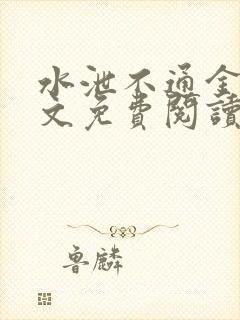 水泄不通全
文免費閱讀
魯麟